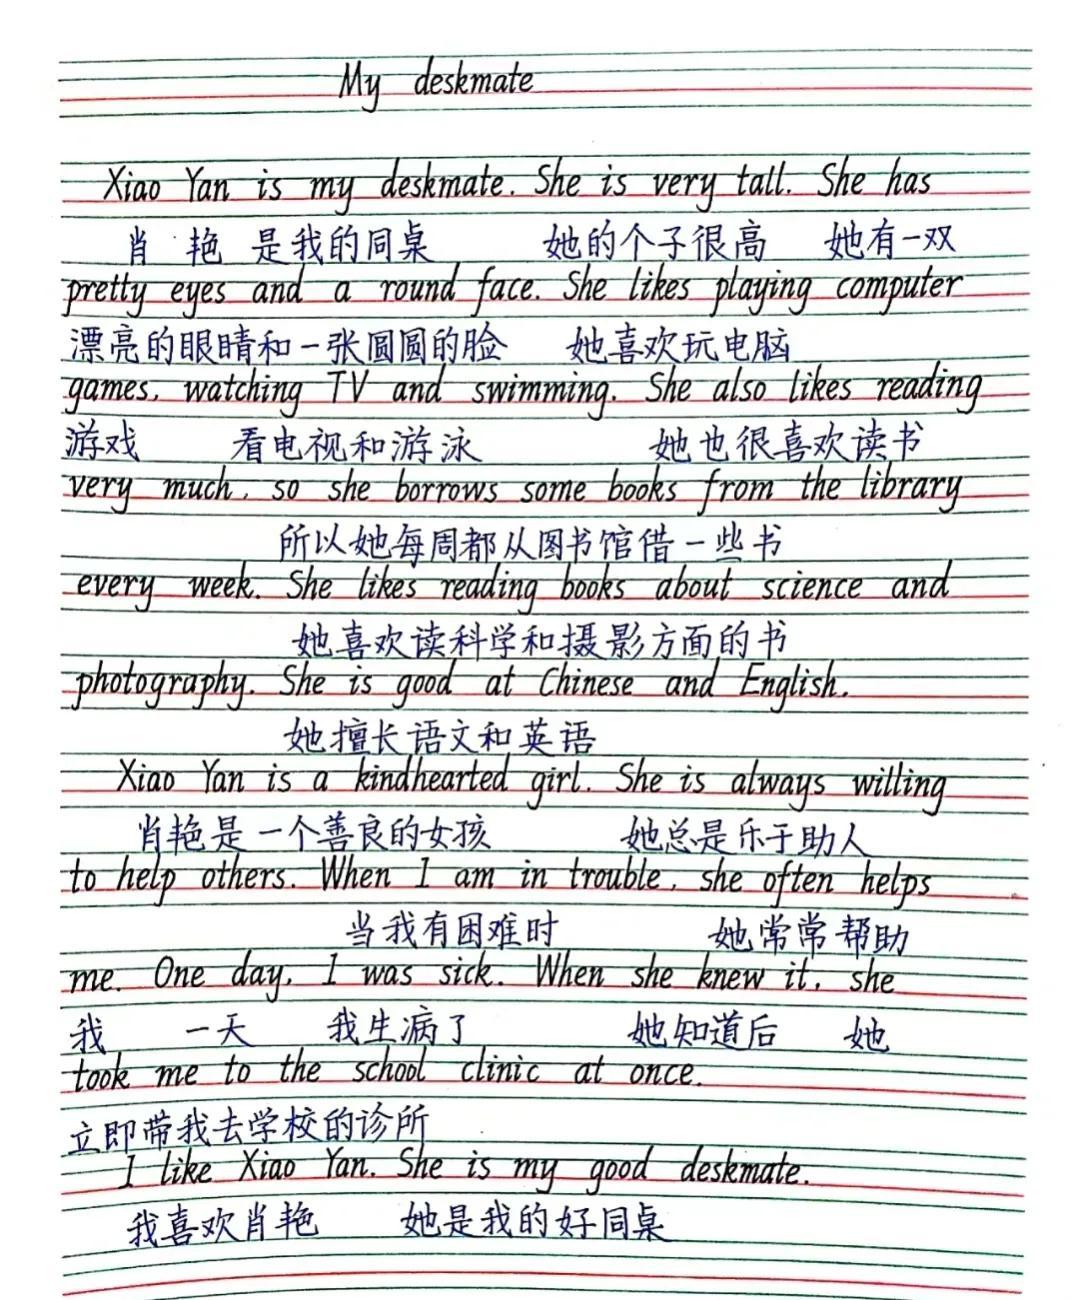 My deskmate
Xiao Yan is my deskmate. She is very tall. She has
肖艳是我的同桌 她的个子很高 她有一双
pretty eyes and a round face. She likes playing computer
漂亮的眼睛和一张圆圆的脸 她喜欢玩电脑
games, watching TV and swimming. She also likes reading
游戏 看电视和游泳 她也很喜欢读书
very much, so she borrows some books from the library
所以她每周都从图书馆借一些书
every week. She likes reading books about science and
她喜欢读科学和摄影方面的书
photography. She is good at Chinese and English.
她擅长语文和英语
Xiao Yan is a kindhearted girl. She is always willing
肖艳是一个善良的女孩 她总是乐于助人
to help others. When I am in trouble, she often helps
当我有困难时 她常常帮助
me. One day, I was sick. When she knew it, she
我 一天 我生病了 她知道后 她
took me to the school clinic at once.
立即带我去学校的诊所
I like Xiao Yan. She is my good deskmate.
我喜欢肖艳 她是我的好同桌